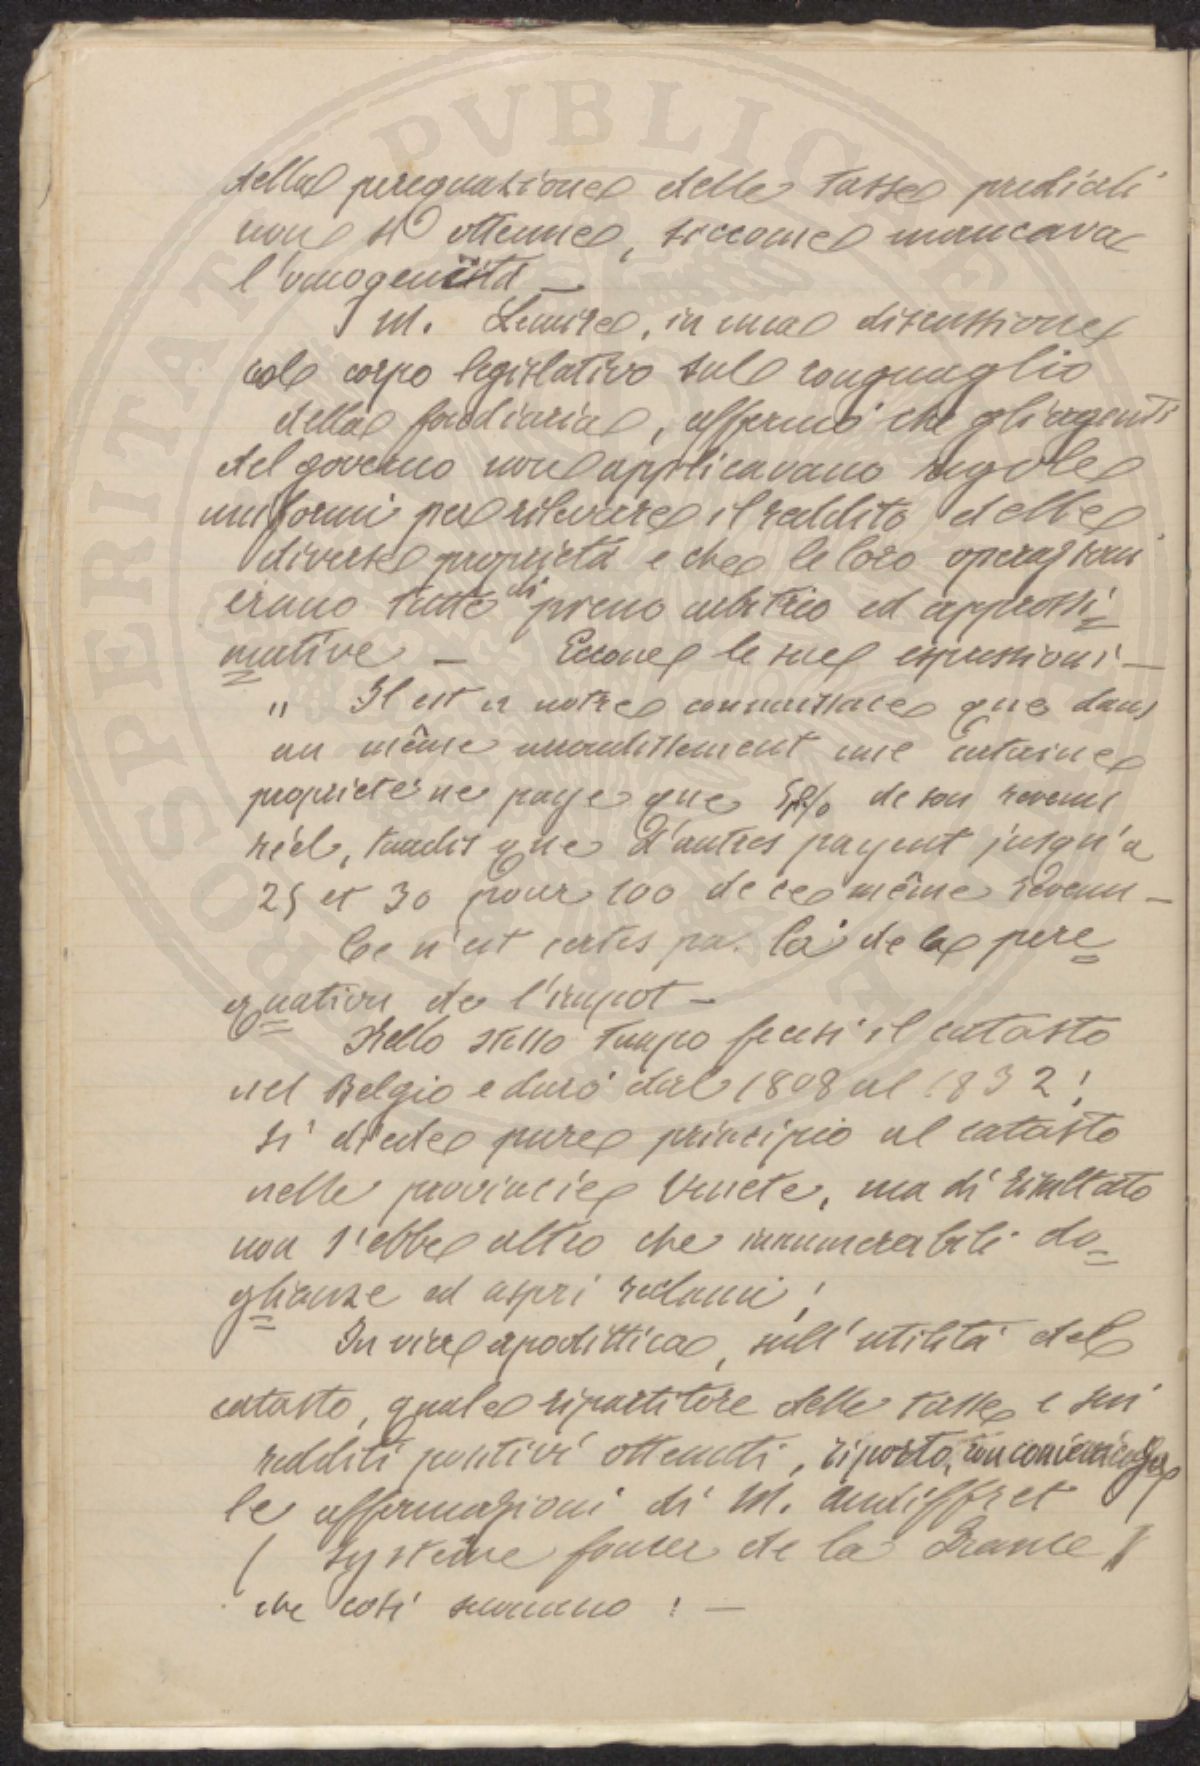 della perequazione delle tasse prediali
non si ottenne, siccome mancava
l'omogeneità —
M. Lemire, in una discussione
col corpo legislativo sul conguaglio
della fondiaria, affermò che gli agenti
del governo non applicavano regole
uniformi per rilevare il reddito delle
diverse proprietà e che le loro operazioni
erano tutte di pieno arbitrio ed approssi=
mative — Eccone le sue espressioni —
" Il est a notre connaissace que dans
un même arrondissement une certaine
proprieté ne paye que de son revenu
réel, tandis que d'autres payent jusqu'a
25 et 30 pour 100 de ce même revenu —
Ce n'est certes pas là de la pere=
quation de l'impot —
Nello stesso tempo fecesi il catasto
nel Belgio e durò dal 1808 al 1832;
si diede pure principio al catasto
nelle provincie Venete, ma di risultato
non s'ebbe altro che innumerabili do=
glianze ed aspri reclami;
In via apodittica, sull'utilità del
catasto, quale ripartitore delle tasse e sui
redditi positivi ottenuti, riporto,
le affermazioni di M. Audiffret
( Systeme de la France )
che così suonano : —
PROSPERITATI PVBLICAE